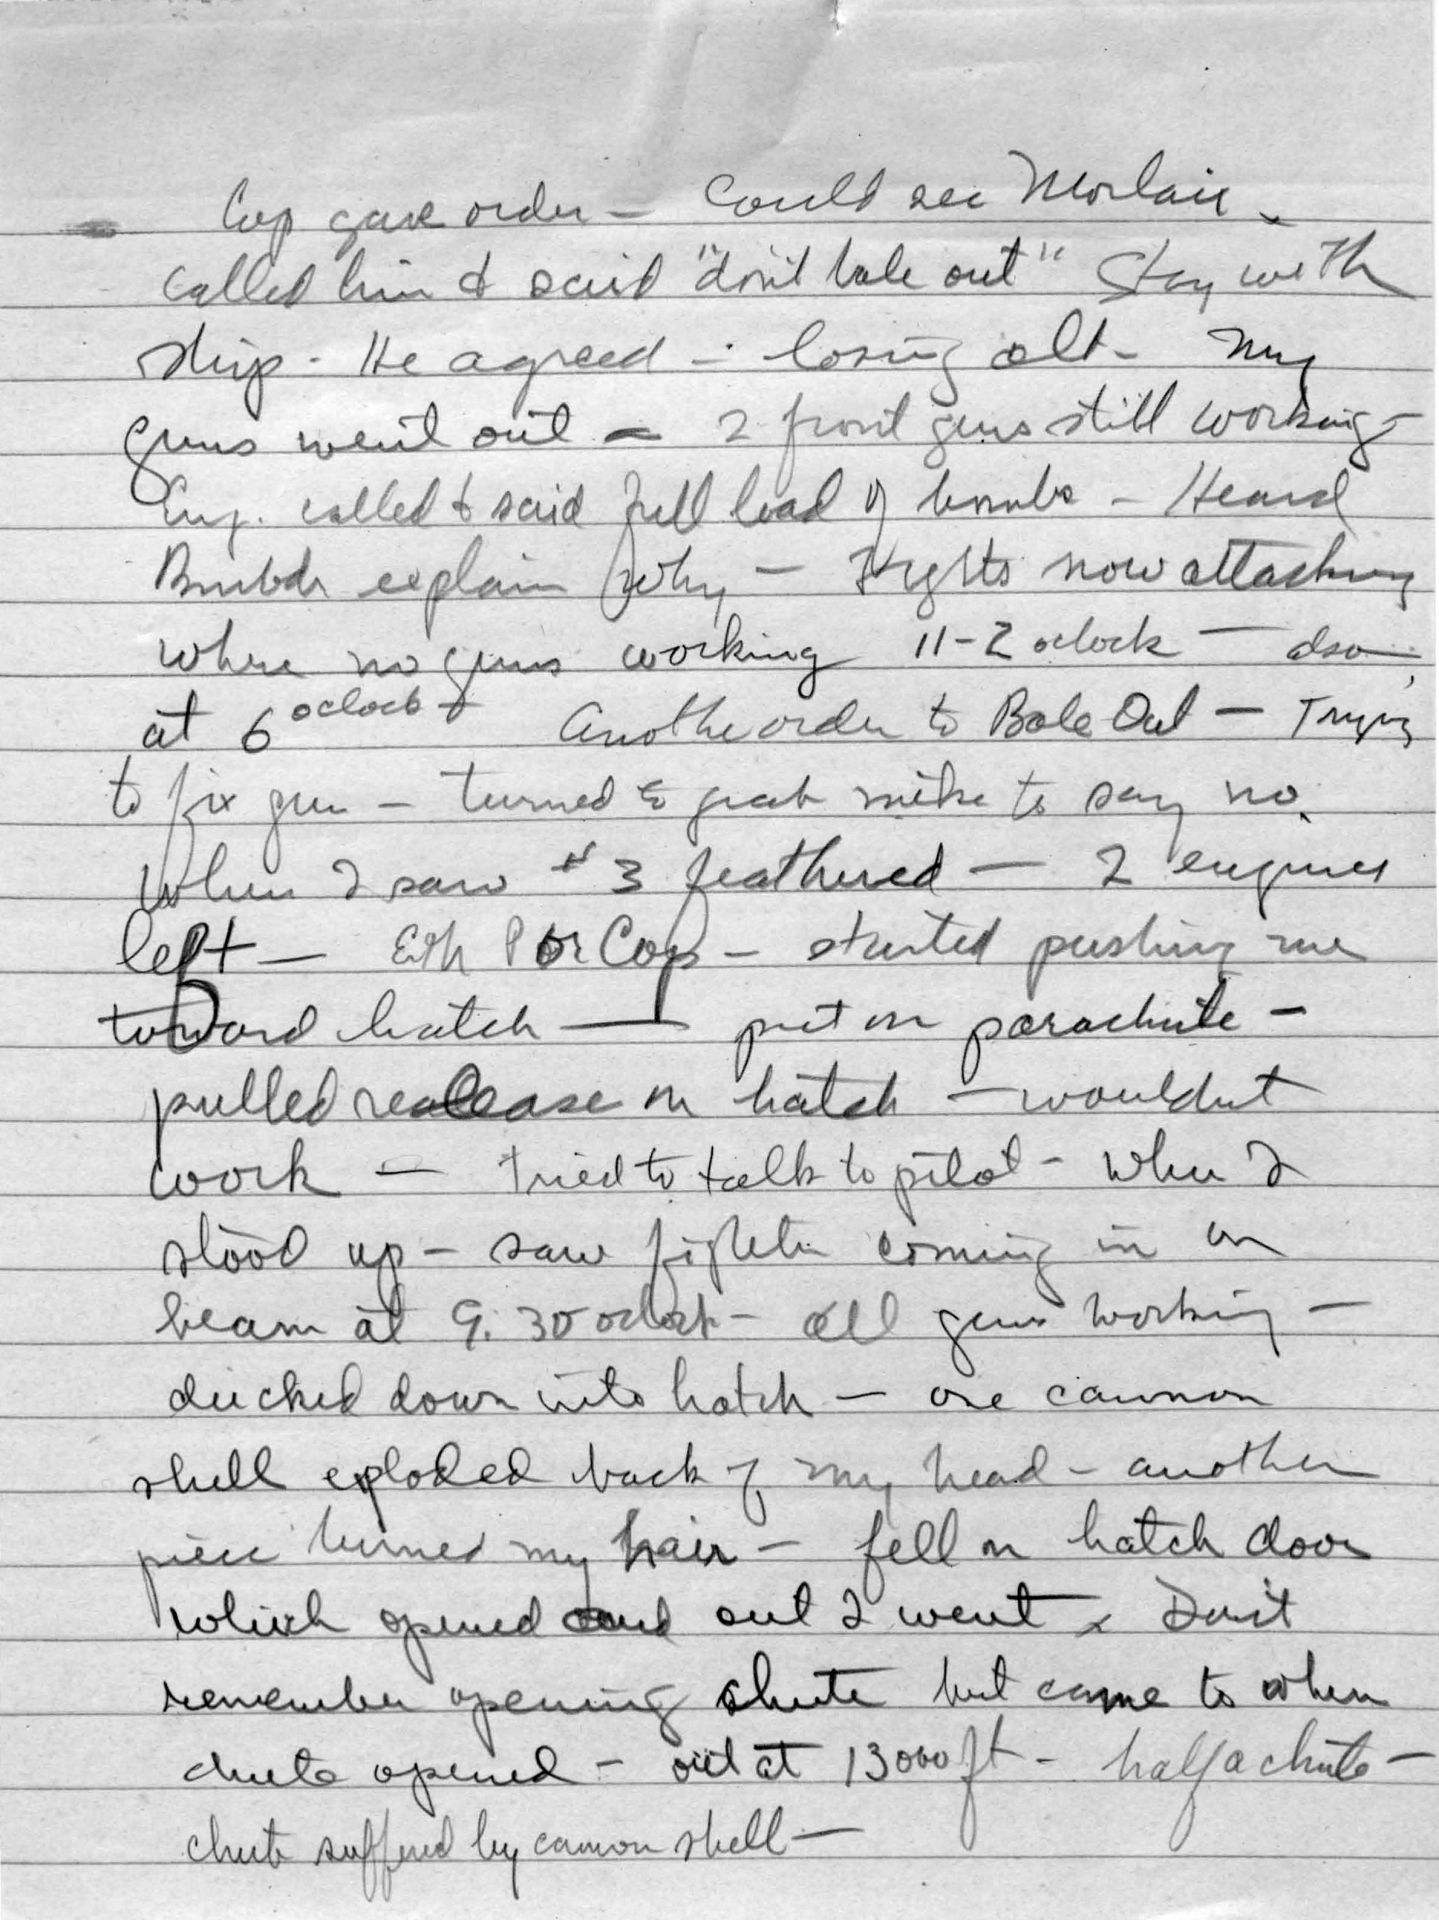 Cop gave order — Could see Morlaix -
called him & said "don't bale out" Stay with
ship - He agreed - losing alt - my
guns went out - 2 front guns still working -
Eng. called & said full load of bombs - Heard
Bmbdr explain why - Fights now attacking
where no guns working 11-2 oclock - also
at 6 oclock - Another order to Bale Out - Trying
to fix gun - turned to grab mike to say no.
When I saw #3 feathered - 2 engines
left - Eith P or Cop - started pushing me
toward hatch — put on parachute -
pulled realease on hatch - wouldnt
work - tried to talk to pilot - when I
stood up - saw fighter coming in on
beam at 9:30 oclock - all guns working -
ducked down into hatch - one cannon
shell exploded back of my head - another
piece burned my hair - fell on hatch door
which opened and out I went - Don't
remember opening chute but came to when
chute opened - out at 13000 ft - half a chute -
chute suffered by cannon shell -